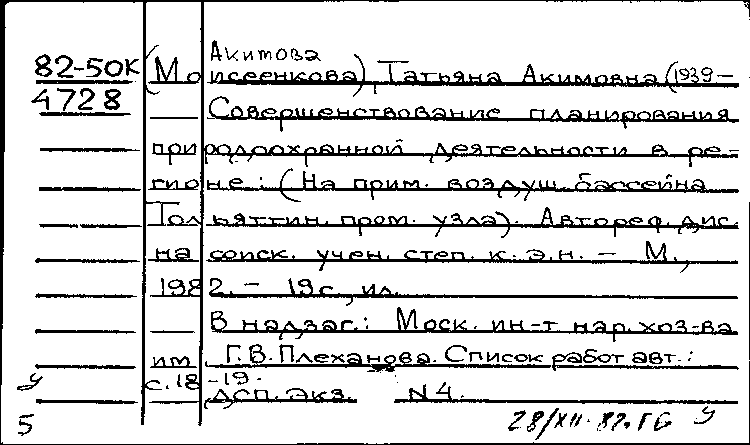 Акимова
82-50К (Моисеенкова), Татьяна Акимовна (1939-
4728 Совершенствование планирования
природоохранной деятельности в ре-
гионе: (На прим. воздуш. бассейна
Тольяттин. пром. узла). Автореф. дис.
на соиск. учен. степ. к.э.н. - М.,
1982. - 19 с., ил.
В надзаг.: Моск. ин-т нар. хоз-ва
им. Г.В. Плеханова. Список работ авт.:
с. 18-19.
Дсп. экз. N4.
у
5 28/XII-82. ГБ У